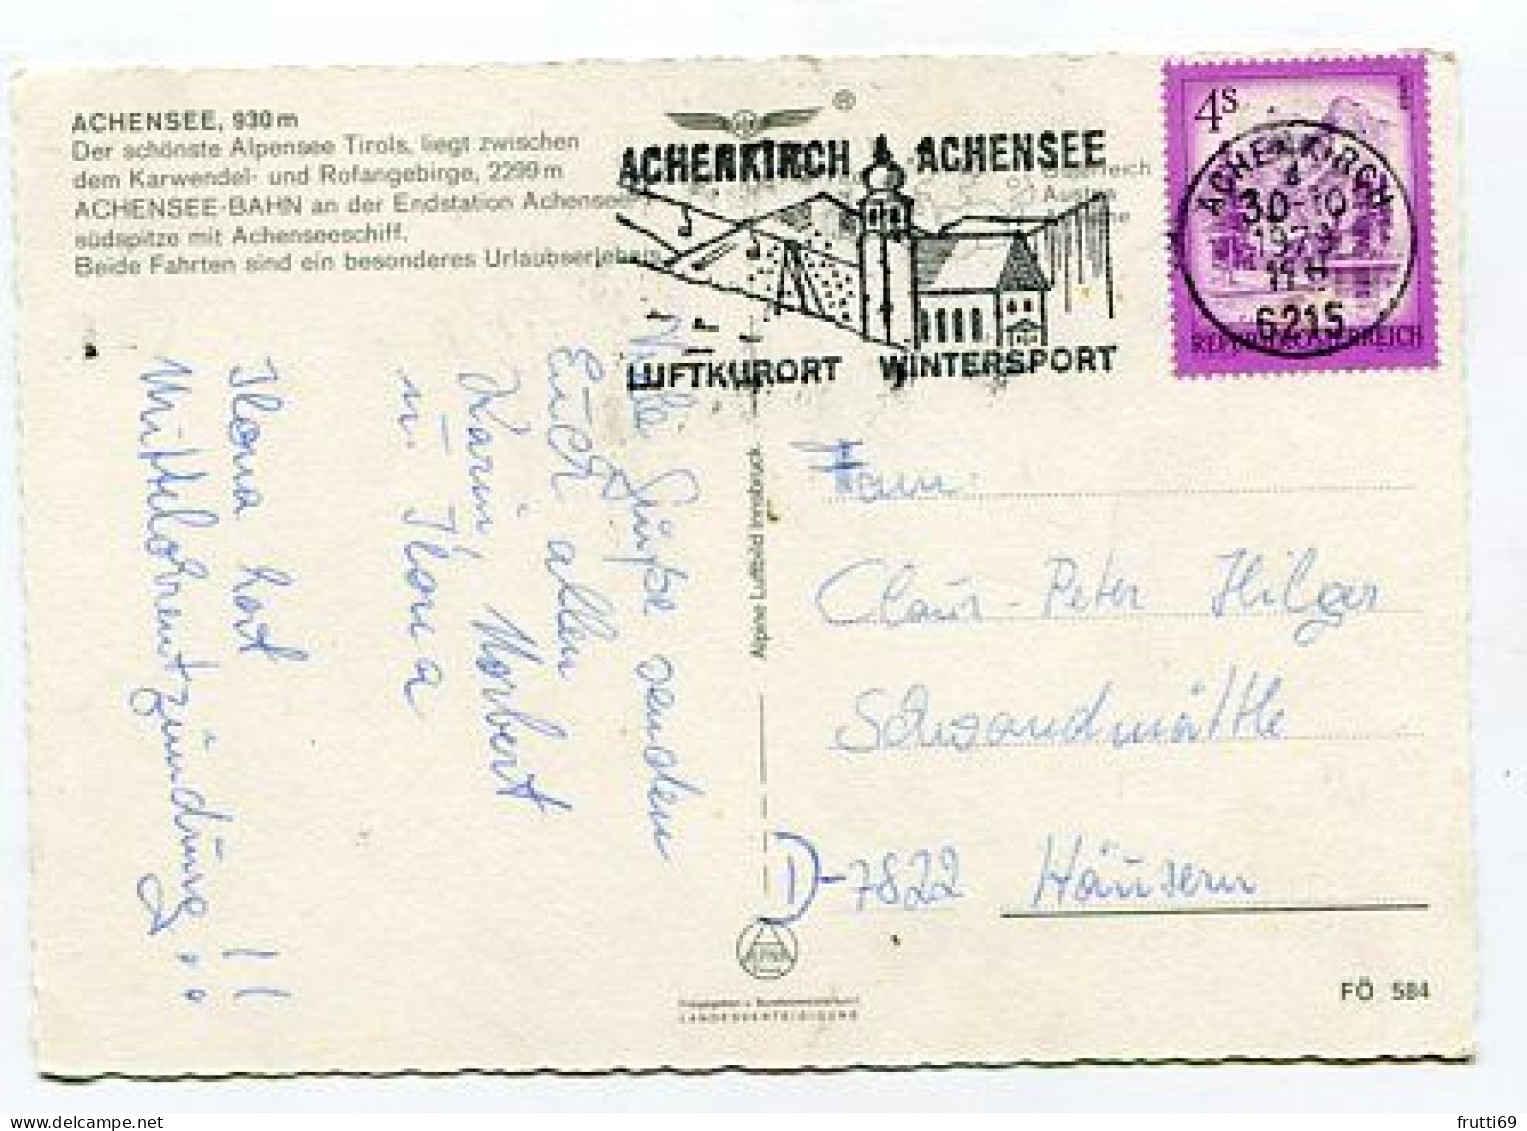 ACHENSEE, 930 m
Der schönste Alpensee Tirols, liegt zwischen
dem Karwendel- und Rofangebirge, 2299 m
ACHENSEE-BAHN an der Endstation Achensee-
südspitze mit Achenseeschiff.
Beide Fahrten sind ein besonderes Urlaubserlebnis
®
ACHENKIRCH ACHENSEE
LUFTKURORT WINTERSPORT
4s
ACHENKIRCH
d
30-10
6215
REPUBLIK ÖSTERREICH
Viele Grüße senden
Euch allen
Karin, Norbert
u. Ilona
Ilona hat
Mittelohrentzündung!!
Alpine Luftbild Innsbruck
Fam.
Claus-Peter Hilger
Schwandmättle
D-7822 Häusern
Freigegeben v. Bundesministerium f.
LANDESVERTEIDIGUNG
FÖ 584
frutti69